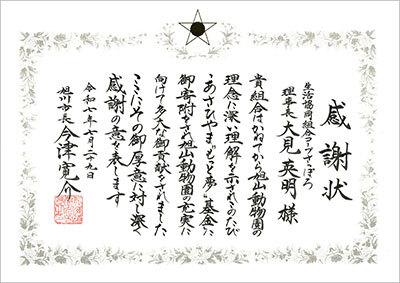 感謝状
生活協同組合コープさっぽろ
理事長 大見英明 様
貴組合はかねてから旭山動物園の
理念に深い理解を示されこのたび
「あさひやまもっと夢基金」に
御寄附をされ旭山動物園の充実に
向けて多大な御貢献をされました
ここにその御厚意に対し深く
感謝の意を表します
令和七年七月二十九日
旭川市長 今津寛介